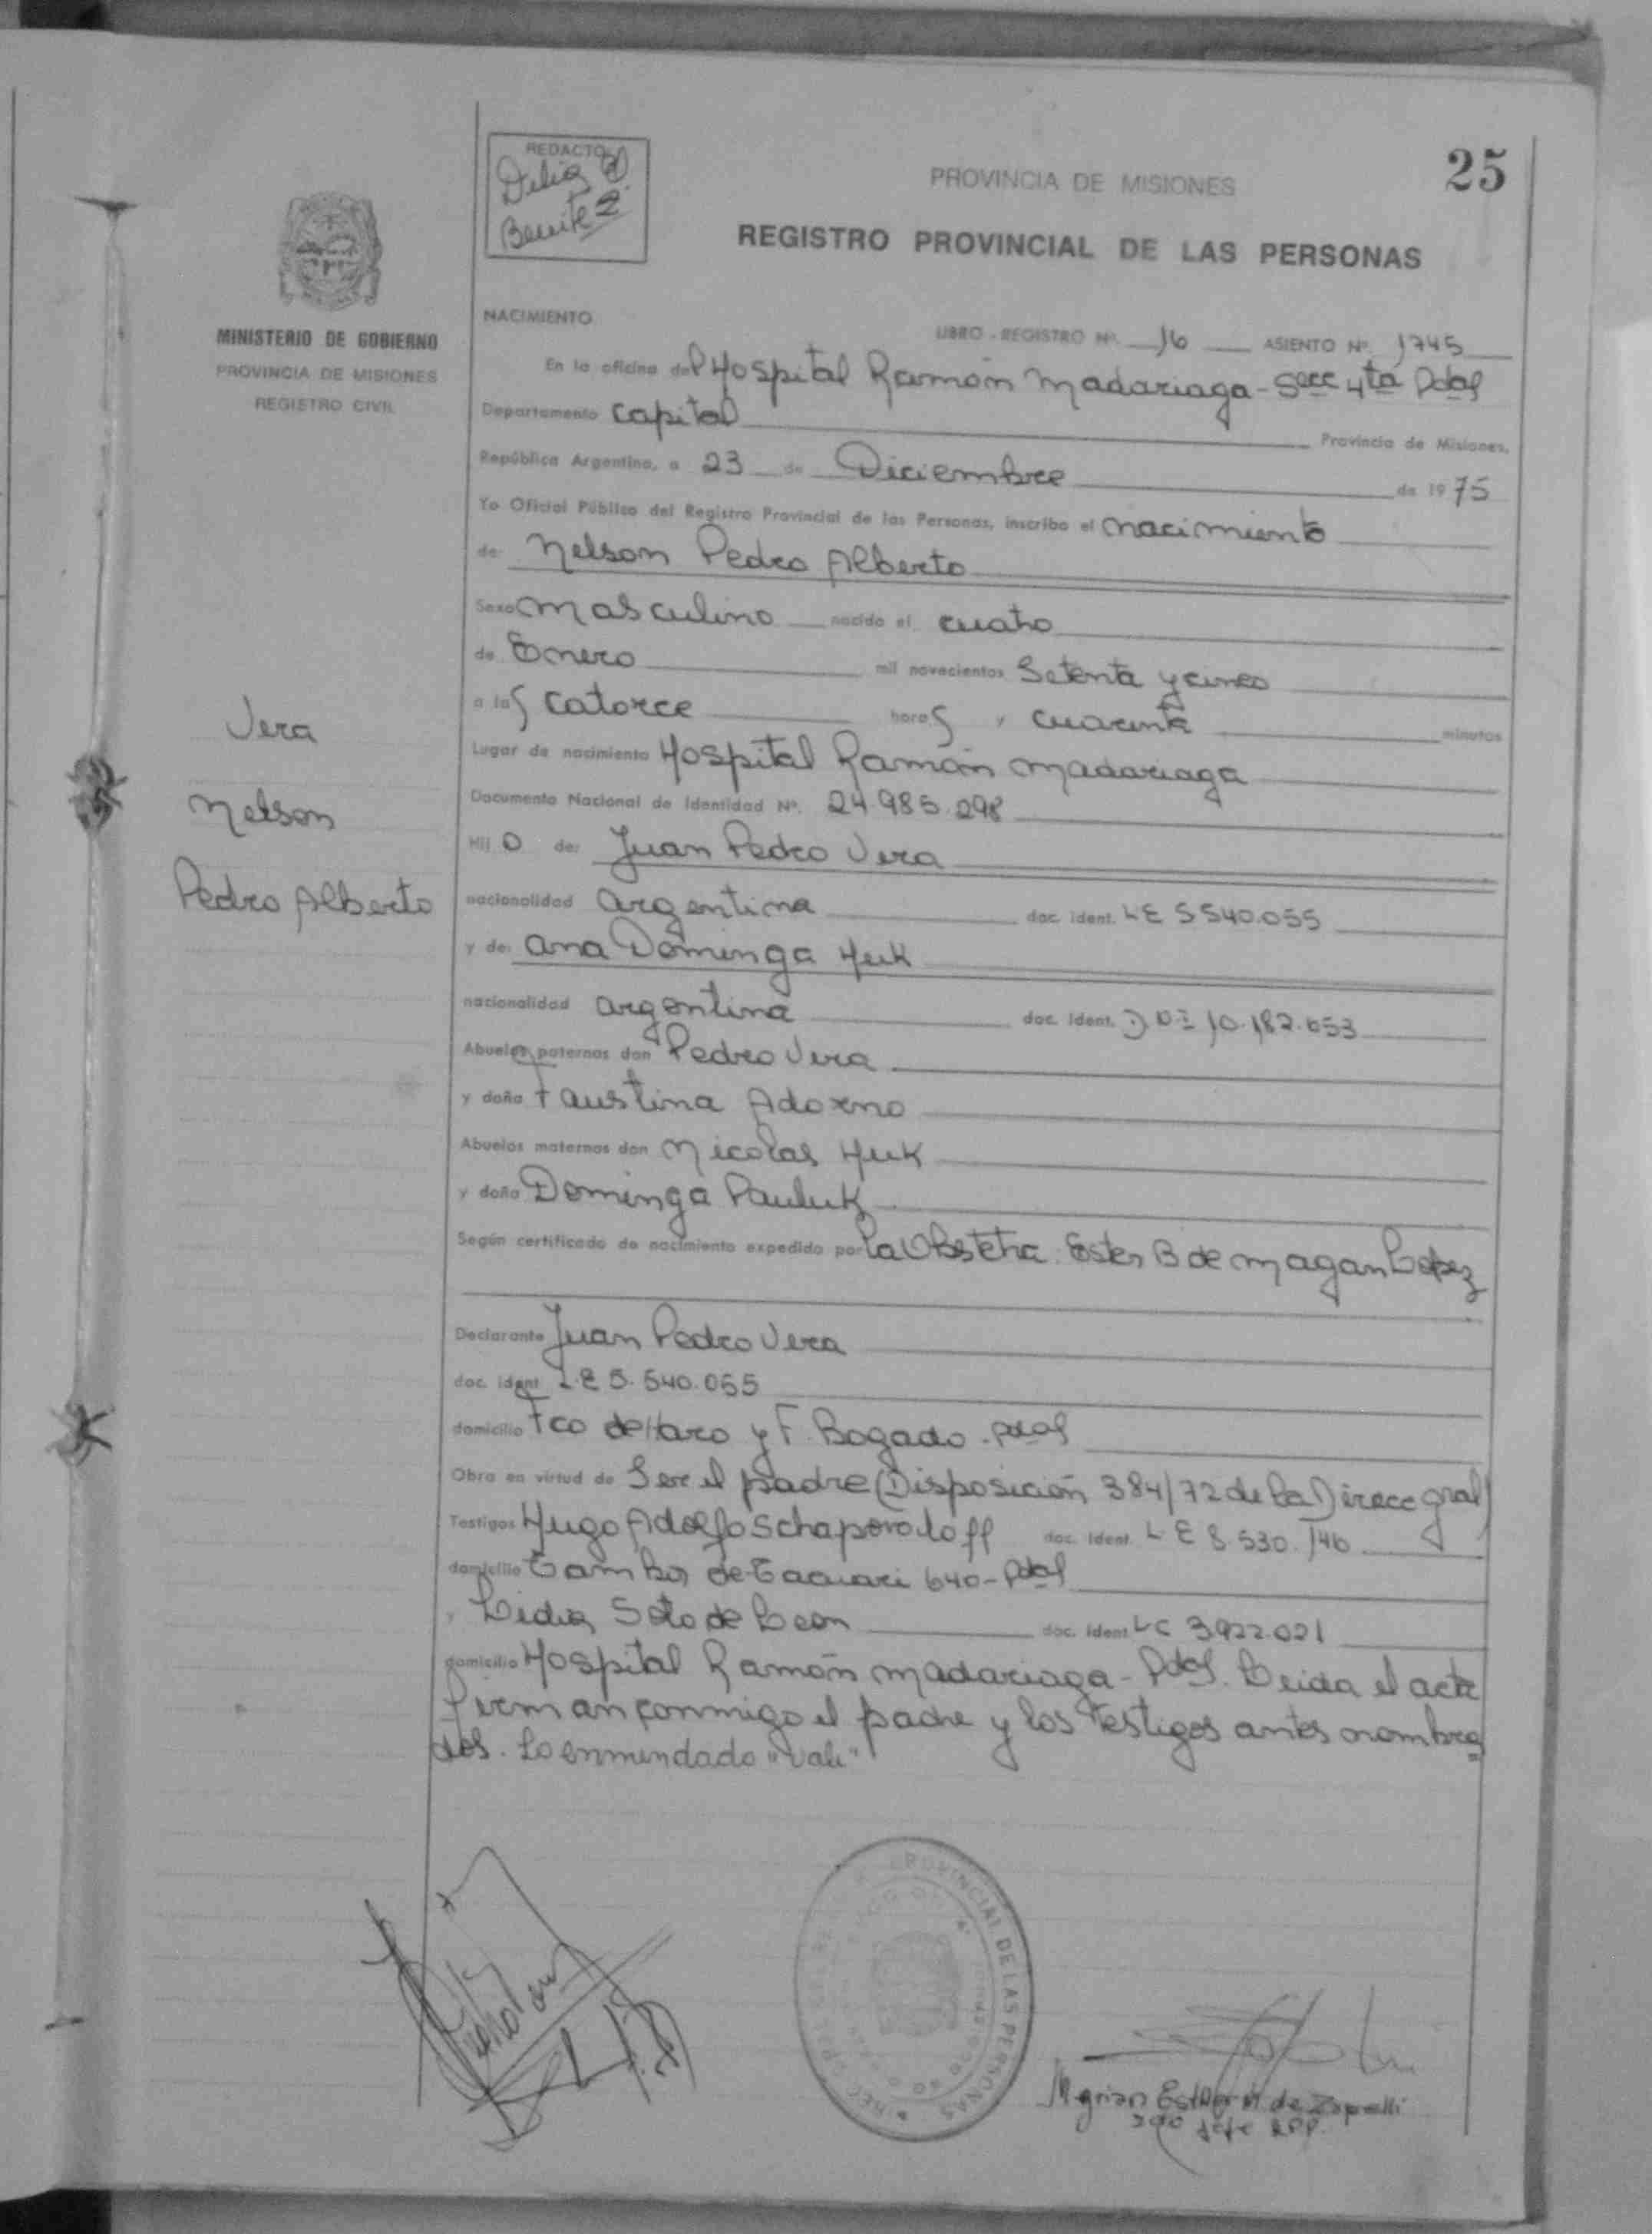 25
REDACTO
Delia
Benitez
PROVINCIA DE MISIONES
REGISTRO PROVINCIAL DE LAS PERSONAS
MINISTERIO DE GOBIERNO
PROVINCIA DE MISIONES
REGISTRO CIVIL
NACIMIENTO
LIBRO - REGISTRO Nº. 16 ASIENTO Nº. 1745
En la oficina del Hospital Ramón Madariaga - Secc 4ta Pdas
Departamento Capital Provincia de Misiones,
República Argentina, a 23 de Diciembre de 1975
Yo Oficial Público del Registro Provincial de las Personas, inscribo el nacimiento
de: Nelson Pedro Alberto
Sexo Masculino nacido el cuatro
de Enero mil novecientos Setenta y cinco
a las catorce horas y cuarenta minutos
Lugar de nacimiento Hospital Ramón Madariaga
Documento Nacional de Identidad Nº. 24.985.298
Hijo de: Juan Pedro Vera
nacionalidad argentina doc. ident. LE 5540.055
y de: Ana Dominga Huk
nacionalidad argentina doc. ident. DNI 10.182.653
Abuelos paternos don Pedro Vera
y doña Faustina Adorno
Abuelos maternos don Nicolas Huk
y doña Dominga Pauluk
Según certificado de nacimiento expedido por la Obstetra. Ester B de Magan Lopez
Declarante Juan Pedro Vera
doc. ident. L.E 5.540.055
domicilio Fco de Haro y F. Bogado - Pdas
Obra en virtud de Ser el padre (Disposición 384/72 de la Direcc gral)
Testigos Hugo Adolfo Schaporoloff doc. ident. L E 8.530.146
domicilio Tambor de Tacuari 640 - Pdas
y Lidia Soto de Leon doc. ident. LC 3.922.021
domicilio Hospital Ramón Madariaga - Pdas. Leida el acta
firman conmigo el padre y los testigos antes nombra
dos. Lo enmendado "Vale"
Vera
Nelson
Pedro Alberto
PROVINCIAL DE LAS PERSONAS
Myrian Esther M. de Zapelli
Jefe RPP.